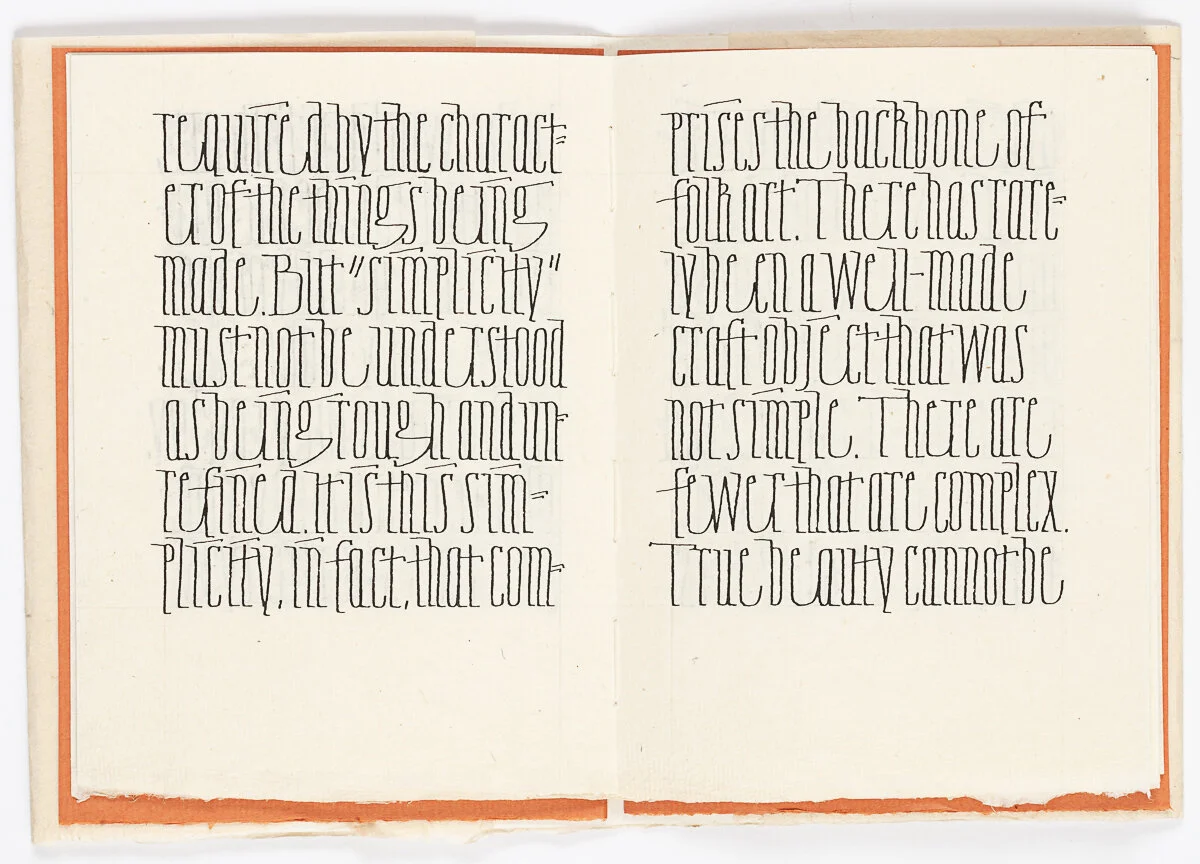 required by the charact=
er of the things being
made. But "simplicity"
must not be understood
as being rough and un=
refined. It is this sim=
plicity, in fact, that com=
prises the backbone of
folk art. There has rare=
ly been a well-made
craft object that was
not simple. There are
fewer that are complex.
True beauty cannot be